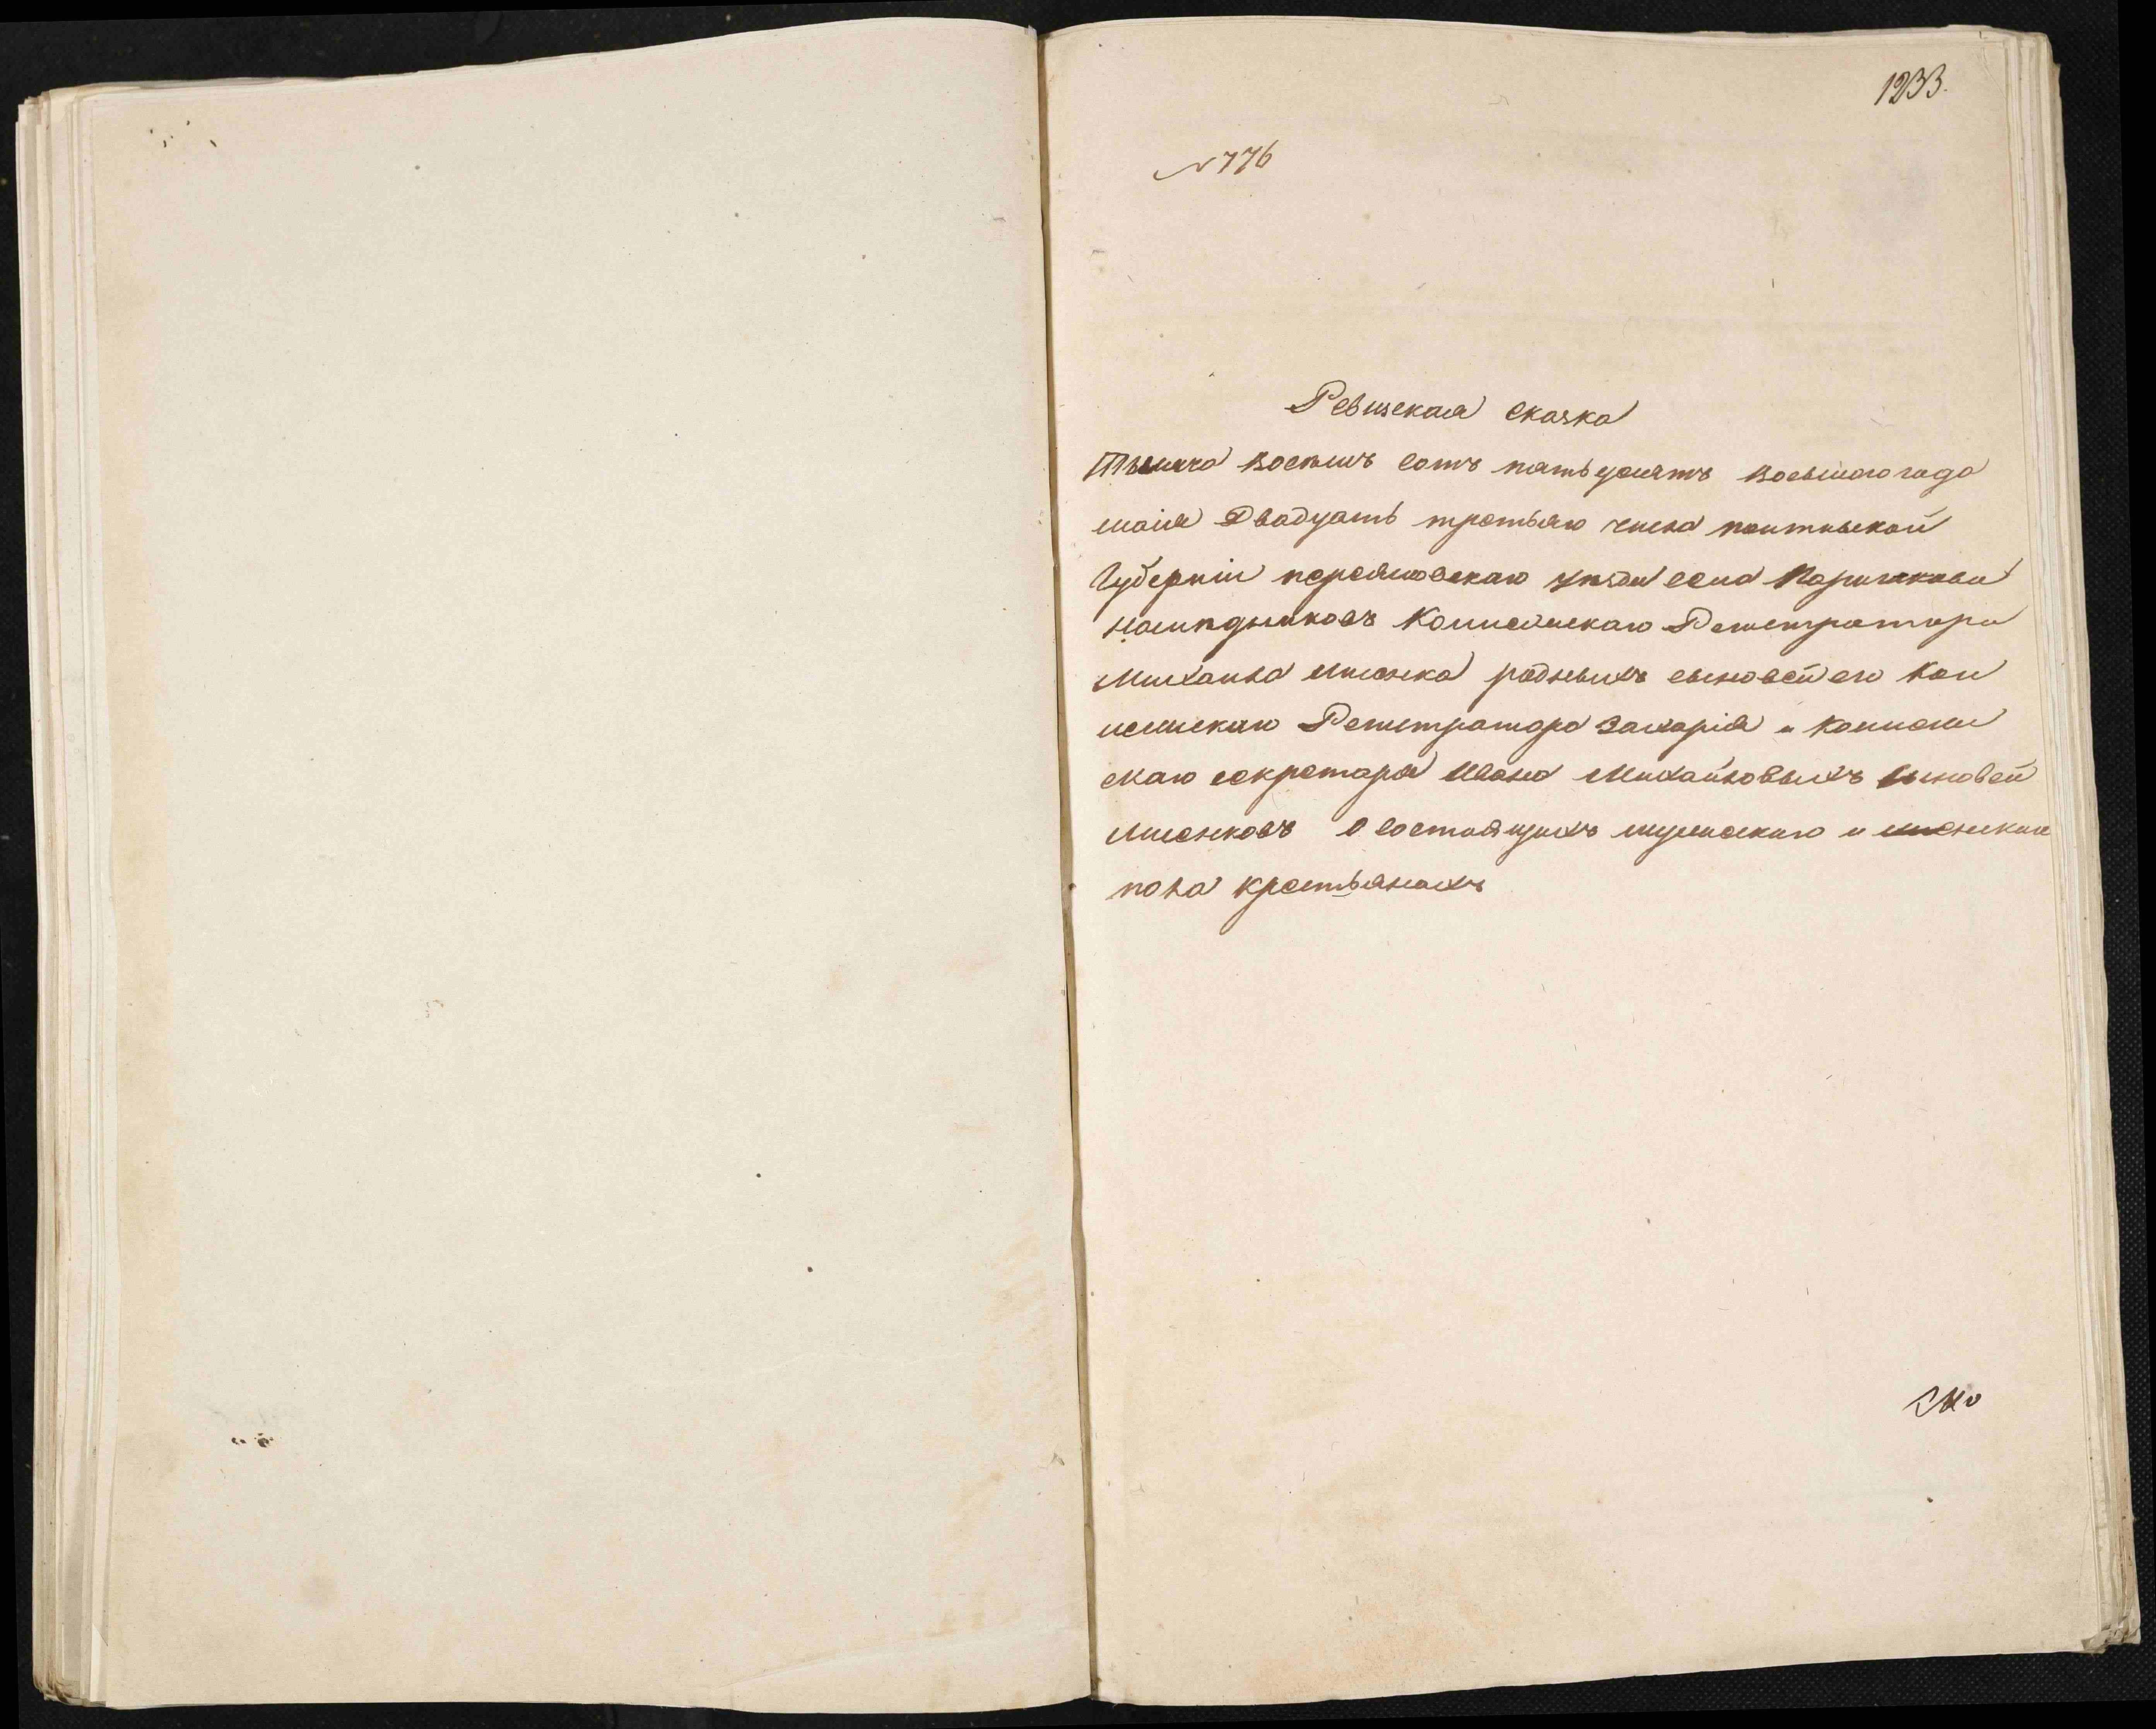 1233.
№776
Ревизская сказка
Тысяча восемь сотъ пятьдесятъ восьмого года
маія Двадцать третьяго числа полтавской
Губерніи переяславскаго уезда села
наследниковъ Коллежскаго Регистратора
Михаила Лисенка родныхъ сыновей его Кол
лежскаго Регистратора Захарія и Коллеж
скаго секретаря Ивана Михайловыхъ сыновей
Лисенковъ О состоящихъ мужескаго и женскаго
пола крестьянахъ